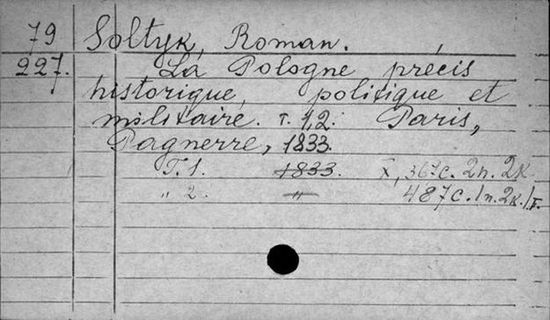 79 Sołtyk, Roman.
227. La Pologne précis
historique, politique et
militaire. т. 1,2. Paris,
Pagnerre, 1833.
T. 1. 1833. X, 367 с. 2 п. 2 к
„ 2. „ 487 с. 1 п. 2 к. 1 т.